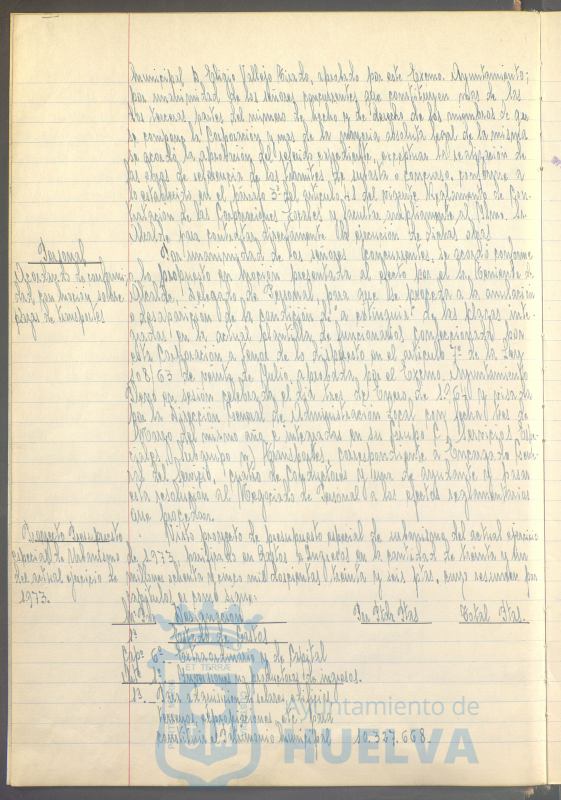 municipal D. Eligio Vallejo Tirado, aprobado por este Excmo. Ayuntamiento;
por unanimidad de los señores concurrentes que constituyen mas de las
dos terceras partes del número de hecho y de derecho de los miembros de que
se compone la Corporacion y mas de la mayoria absoluta legal de la misma
se acordó la aprobacion del referido expediente, exceptuar la realizacion de
las obras de referencia de los tramites de subasta o concurso, conforme a
lo establecido en el párrafo 3º del artículo 41 del vigente Reglamento de Con-
tratacion de las Corporaciones Locales y facultar ampliamente al Iltmo. Sr.
Alcalde para contratar directamente la ejecucion de dichas obras
Personal
Acordando de conformi-
dad, con mocion sobre
plazas de transportes
Por unanimidad de los señores concurrentes, se acordó conforme
a lo propuesto en mocion presentada al efecto por el Sr. Teniente de
Alcalde, Delegado de Personal, para que se proceda a la anulacion
o desaparicion de la condición de "a extinguir" de las plazas inte-
gradas en la actual plantilla de funcionarios confeccionada por
esta Corporacion a tenor de lo dispuesto en el artículo 7º de la Ley
108/63 de veinte de Julio, aprobada por el Excmo. Ayuntamiento
Pleno en sesión celebrada el dia tres de Enero, de 1.967 y visada
por la Direccion General de Administración Local con fecha tres de
Marzo del mismo año e integradas en su Grupo C y Servicios Espe-
ciales, Subgrupo Transportes, correspondiente a Encargado gene-
ral del Servicio, cuatro de Conductores y una de ayudante y pasar
esta resolucion al Negociado de Personal a los efectos reglamentarios
que procedan.
Proyecto Presupuesto
especial de urbanismo
del actual ejercicio de
1.973.
Visto proyecto de presupuesto especial de urbanismo del actual ejercicio
de 1.973, nivelado en Gastos e Ingresos en la cantidad de treinta y un
millones ochenta y cinco mil doscientas treinta y seis ptas, cuyo resumen por
capítulos es como sigue:
Designacion Por Ptda Ptas Total Ptas.
1º Estado de Gastos
Capº 6º Extraordinario y de Capital
Art. 1º Inversiones no productoras de ingresos.
1ª.- Para adquisicion de solares, edificios
terrenos, expropiaciones, etc para
constituir el Patrimonio municipal 10.327.668.
Ayuntamiento de
HUELVA